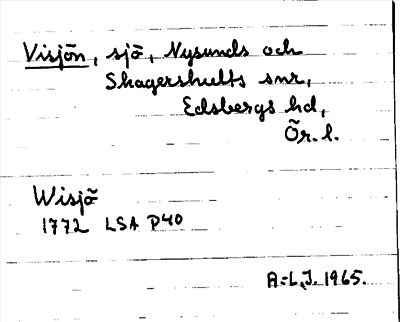 Visjön, sjö, Nysunds och
Skagershults snr,
Edsbergs hd,
Ör. l.
Wisjö
1772 LSA P40
A.-L.J. 1965.